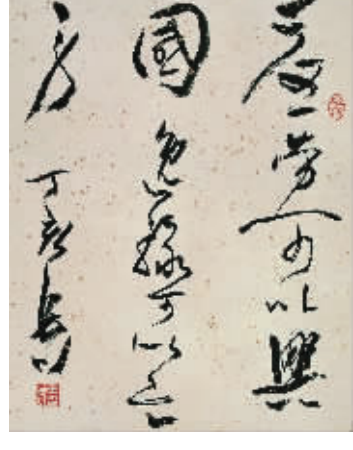 憂勞可以興
國逸豫可以亡
身丁亥